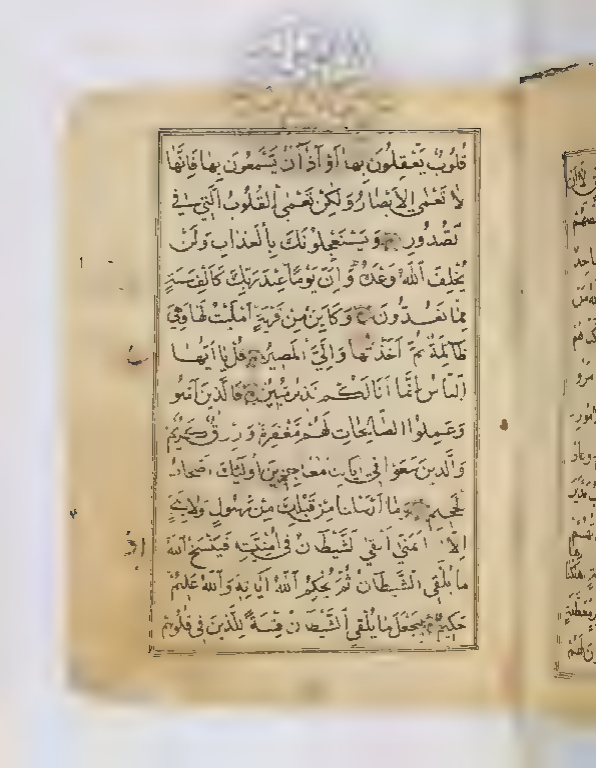 قُلُوبٌ يَعْقِلُونَ بِهَا أَوْ آذَانٌ يَسْمَعُونَ بِهَا فَإِنَّهَا
لَا تَعْمَى الْأَبْصَارُ وَلَكِنْ تَعْمَى الْقُلُوبُ الَّتِي فِي
الصُّدُورِ وَيَسْتَعْجِلُونَكَ بِالْعَذَابِ وَلَنْ
يُخْلِفَ اللَّهُ وَعْدَهُ وَإِنَّ يَوْمًا عِنْدَ رَبِّكَ كَأَلْفِ سَنَةٍ
مِمَّا تَعُدُّونَ وَكَأَيِّنْ مِنْ قَرْيَةٍ أَمْلَيْتُ لَهَا وَهِيَ
ظَالِمَةٌ ثُمَّ أَخَذْتُهَا وَإِلَيَّ الْمَصِيرُ قُلْ يَا أَيُّهَا
النَّاسُ إِنَّمَا أَنَا لَكُمْ نَذِيرٌ مُبِينٌ فَالَّذِينَ آمَنُوا
وَعَمِلُوا الصَّالِحَاتِ لَهُمْ مَغْفِرَةٌ وَرِزْقٌ كَرِيمٌ
وَالَّذِينَ سَعَوْا فِي آيَاتِنَا مُعَاجِزِينَ أُولَئِكَ أَصْحَابُ
الْجَحِيمِ وَمَا أَرْسَلْنَا مِنْ قَبْلِكَ مِنْ رَسُولٍ وَلَا نَبِيٍّ
إِلَّا إِذَا تَمَنَّى أَلْقَى الشَّيْطَانُ فِي أُمْنِيَّتِهِ فَيَنْسَخُ اللَّهُ
مَا يُلْقِي الشَّيْطَانُ ثُمَّ يُحْكِمُ اللَّهُ آيَاتِهِ وَاللَّهُ عَلِيمٌ
حَكِيمٌ لِيَجْعَلَ مَا يُلْقِي الشَّيْطَانُ فِتْنَةً لِلَّذِينَ فِي قُلُوبِهِمْ